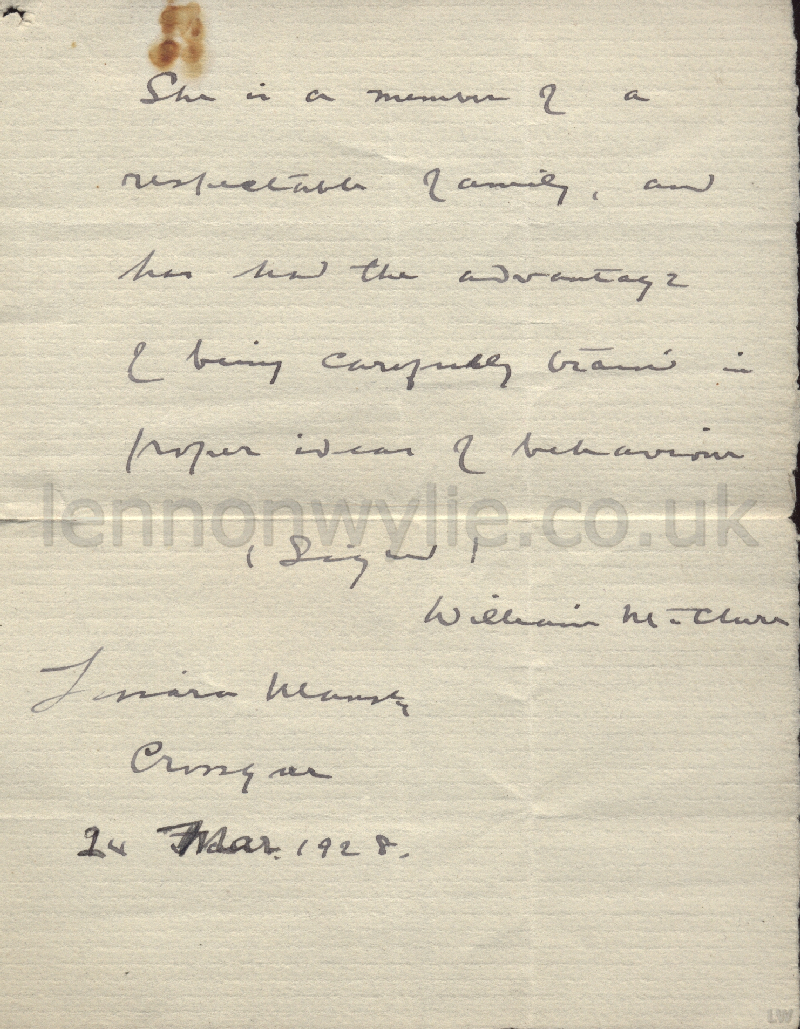 She is a member of a
respectable family, and
has had the advantage
of being carefully trained in
proper ideas of behaviour
lennonwylie.co.uk
(Signed)
William McClure
Lissara Manse
Crossgar
24 Mar. 1928.
LW